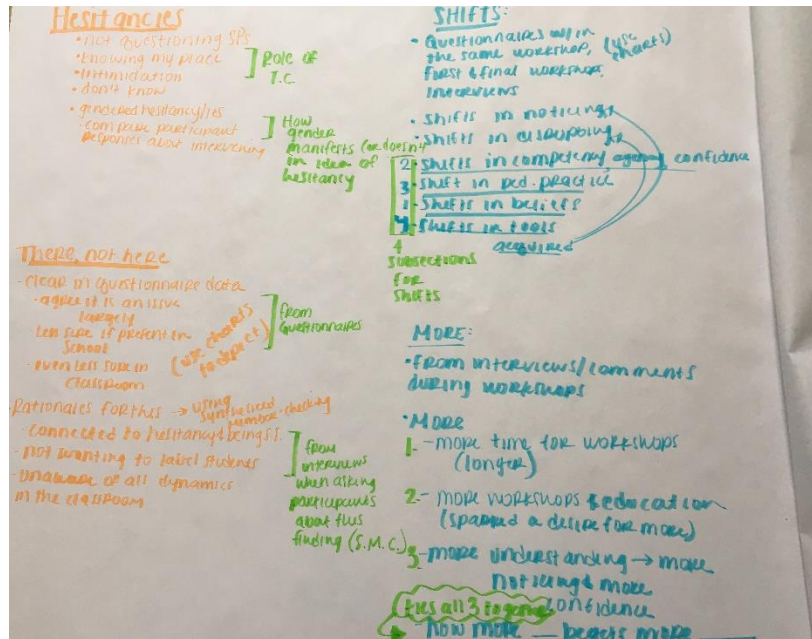 Hesitancies
• not questioning SPs
• knowing my place
• intimidation
• don't know
] Role of
T.C.
• gendered hesitancy/ies
- compare participant
responses about intervening
] How
gender
manifests (or doesn't)
in idea of
hesitancy
There, not here
- clear in questionnaire data
• agree it is an issue
largely
Less sure if present in
School
- even less sure in
classroom
(use charts
to depict)
] from
questionnaires
- Rationales for this → using
synthesized
member-checking
- connected to hesitancy & being
- not wanting to label students
- unaware of all dynamics
in the classroom
] from
interviews
when asking
participants
about this
finding (S.M.C.)
SHIFTS:
• Questionnaires w/in
the same workshop,
first & final workshop,
interviews
(use
charts)
• shifts in noticing
• shifts in disrupting
2 - shifts in competency, agency, confidence
3 - shift in ped. practice
1 - shifts in beliefs
4 - shifts in tools
acquired
4
subsections
for
shifts
MORE:
• from interviews/comments
during workshops
• MORE
1. - more time for workshops
(longer)
2 - more workshops & education
(sparked a desire for more)
3 - more understanding → more
noticing & more
confidence
ties all 3 together
how more __ begets more __